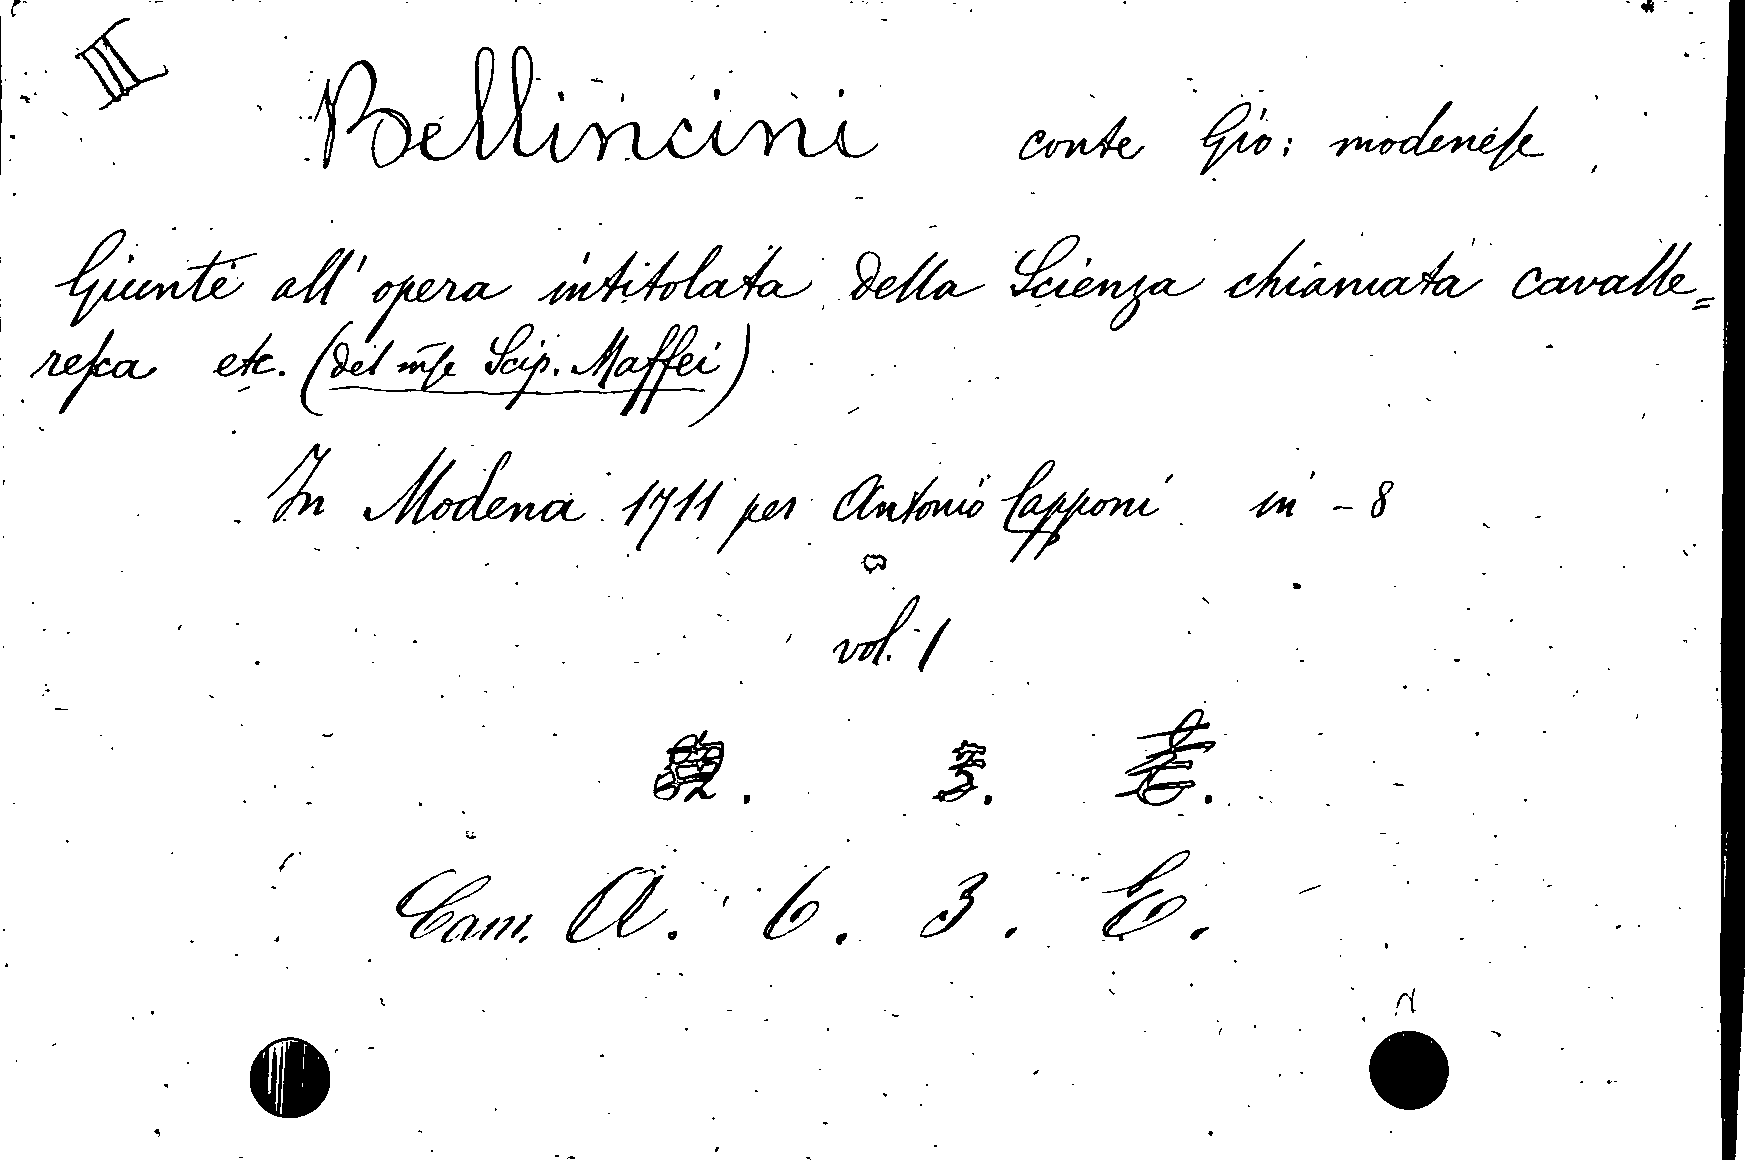 III
Bellincini conte Gio: modenese
Giunte all' opera intitolata della Scienza chiamata cavalle=
resca etc. (del mse Scip. Maffei)
In Modena 1711 per Antonio Capponi in - 8
vol. 1
Cam. A. 6. 3. E.